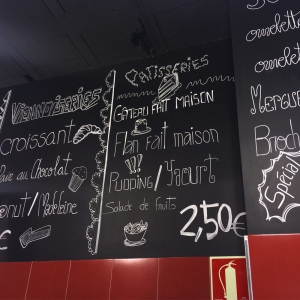 Viennoiseries
croissant
au Chocolat
/Madeleine
€
Patisseries
Gâteau fait maison
Flan fait maison
Pudding/Yaourt
Salade de fruits
2,50€
omelette
omelette
Mergue
Broch
Spécial